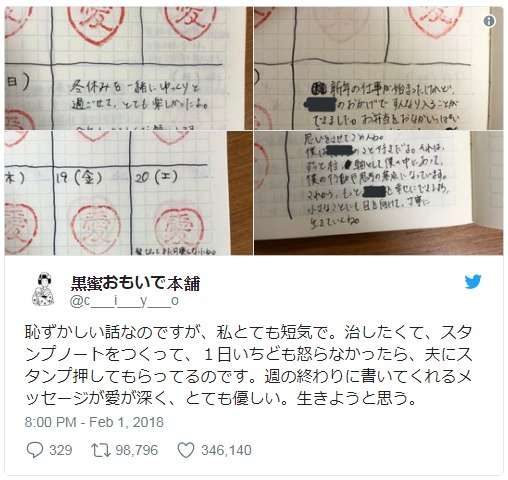 愛
愛
愛
日)
冬休みを一緒にゆっくりと
過ごせて、とても楽しかったよ。
新年の仕事が始まったけれど、
のおかげですんなり入ることが
できました。お弁当も
木)
19(金)
20(土)
愛
愛
愛
思いをさせてごめんね。
僕は のこと好きだよ。それは、
僕の行動や思考の原点になっている。
これから、もっと を幸せにできるよう、
小さなことにも目を向けて、丁寧に
生きていくね。
黒蜜おもいで本舗
@c___i___y___o
恥ずかしい話なのですが、私とても短気で。治したくて、スタ
ンプノートをつくって、１日いちども怒らなかったら、夫にス
タンプ押してもらってるのです。週の終わりに書いてくれるメ
ッセージが愛が深く、とても優しい。生きようと思う。
8:00 PM - Feb 1, 2018
329 98,796 346,140